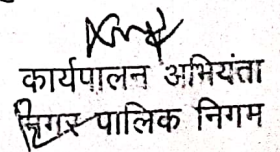 कार्यपालन अभियंता
नगर पालिक निगम